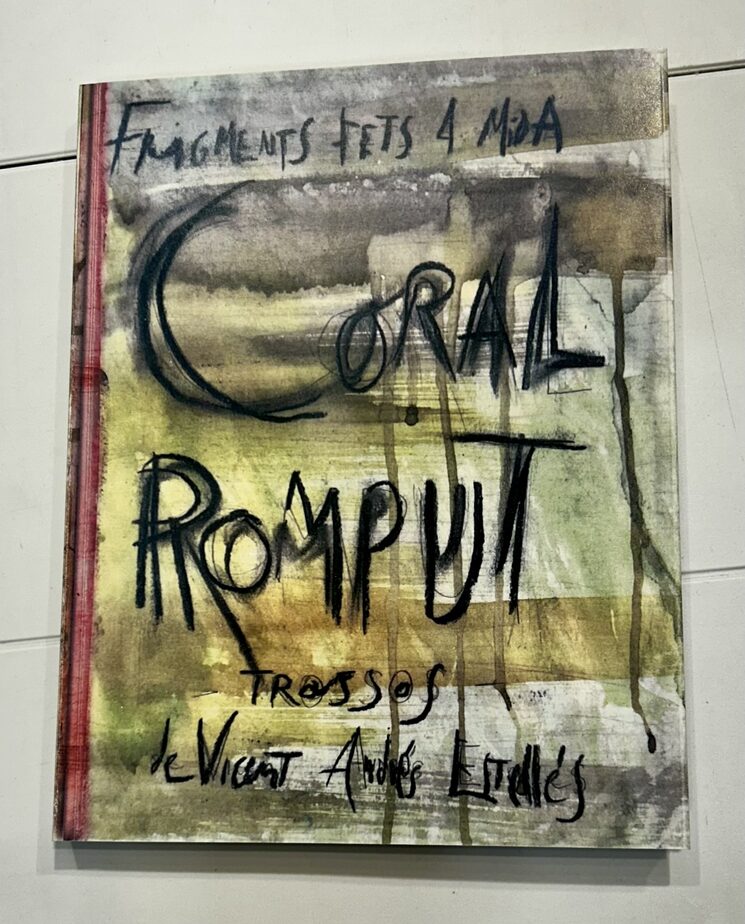 FRAGMENTS FETS A MIDA
CORAL
ROMPUT
TROSSOS
de VICENT ANDRÉS ESTELLÉS